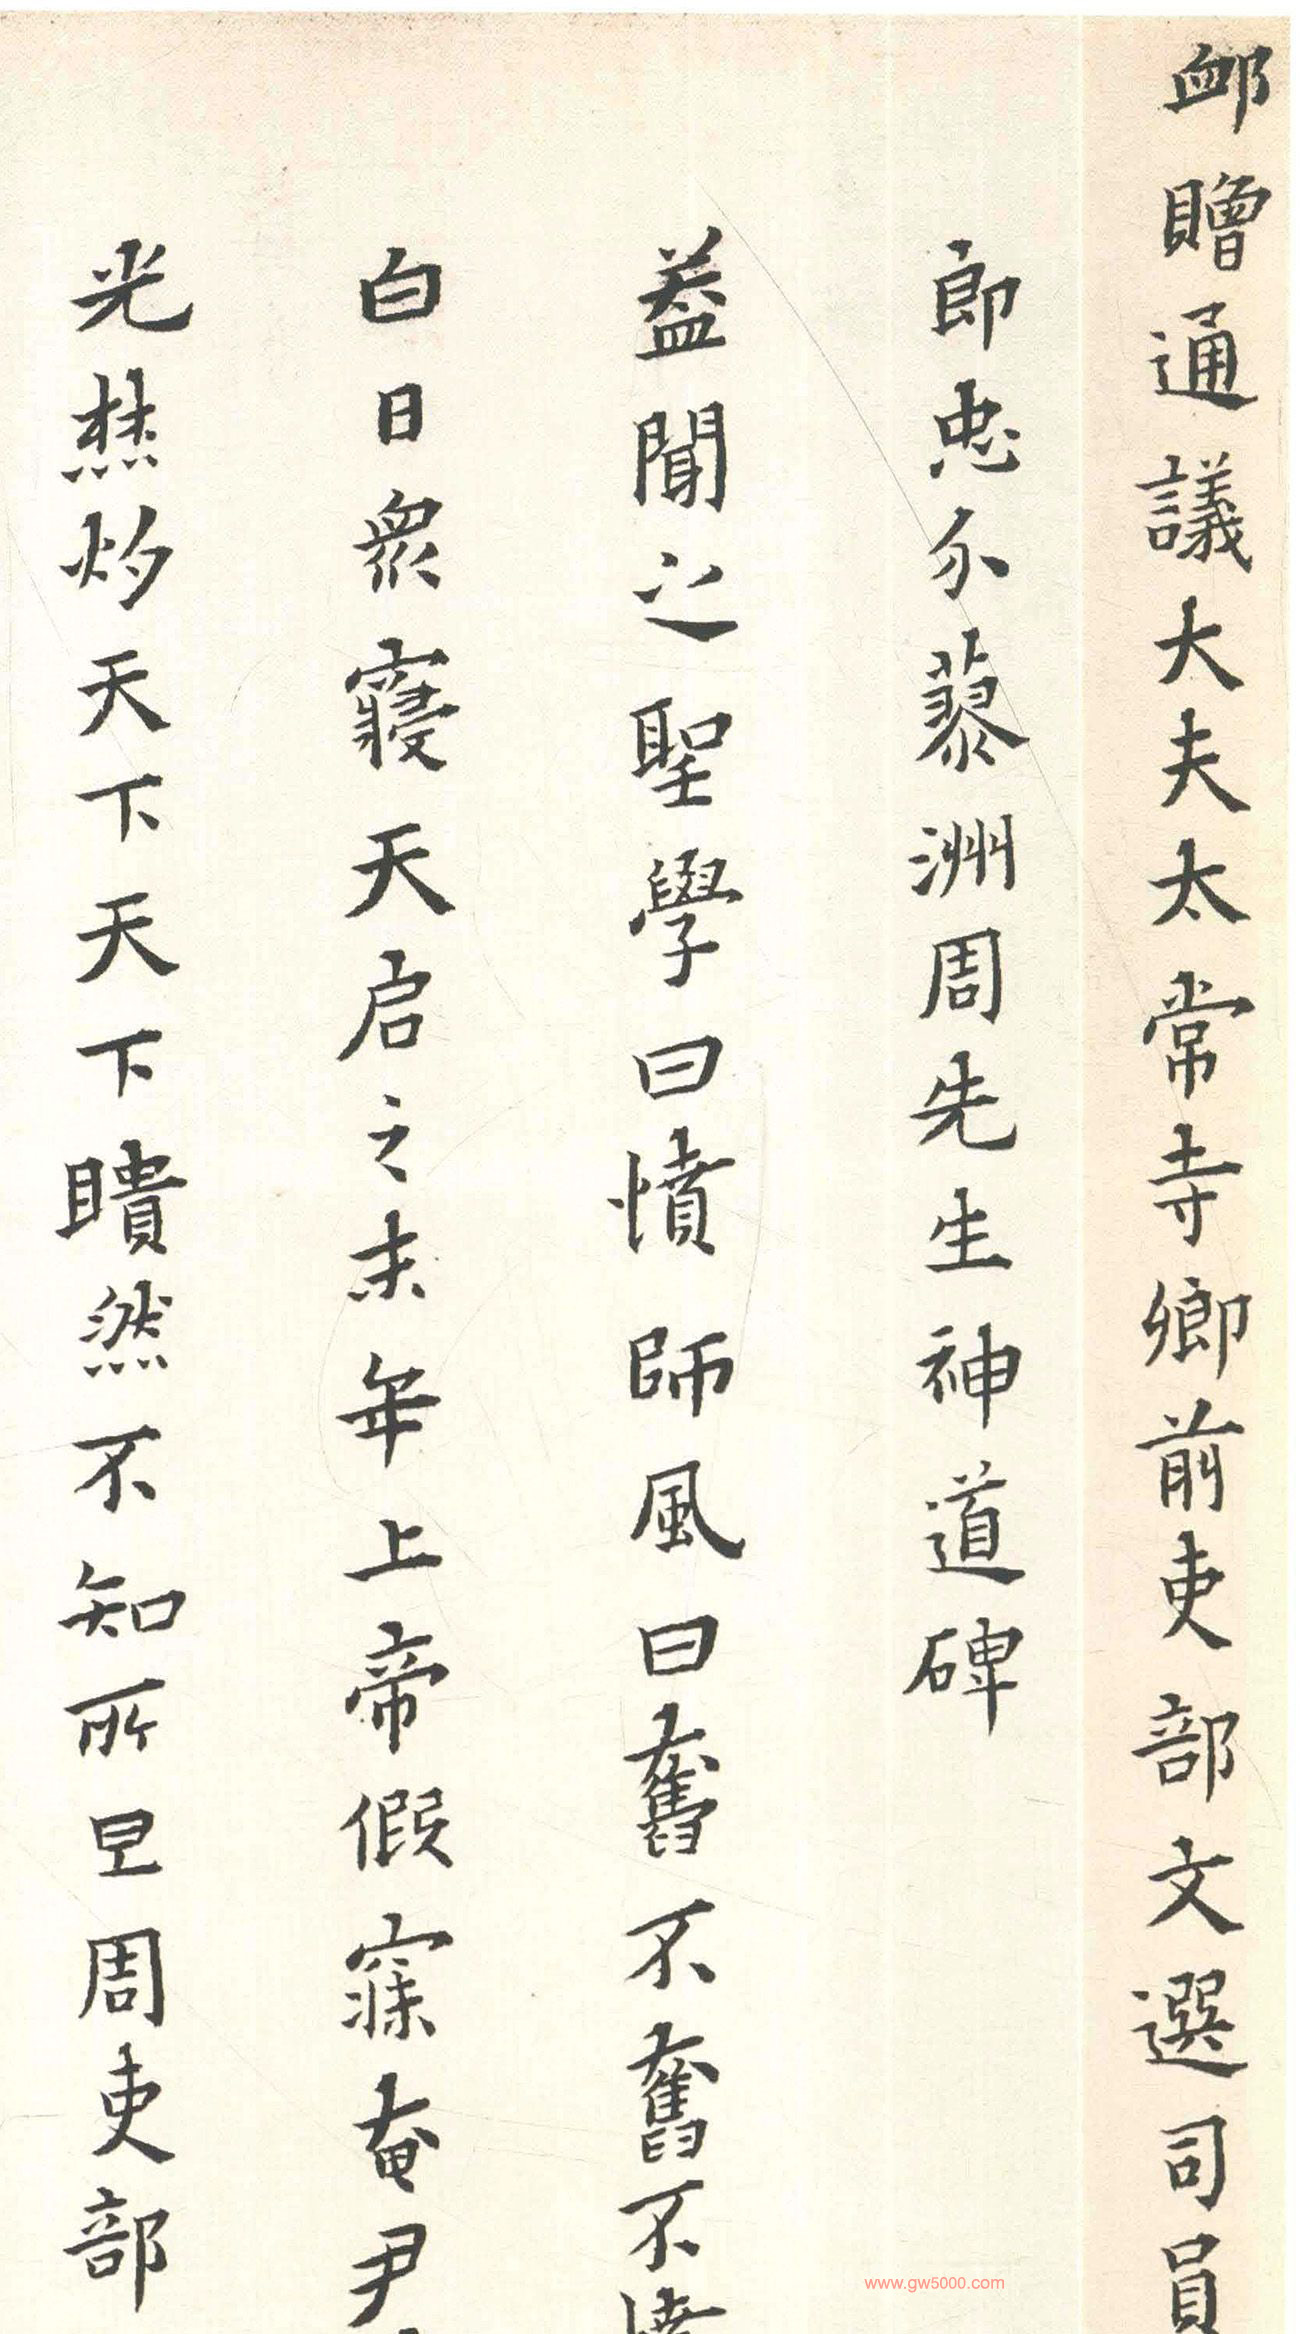 卹贈通議大夫太常寺卿前吏部文選司員
郎忠介蓼洲周先生神道碑
葢聞之聖學曰憤師風曰奮不奮不憤
白日衆寢天启之末年上帝假寐奄尹
光焚灼天下天下瞶然不知所㠯周吏部
www.gw5000.com